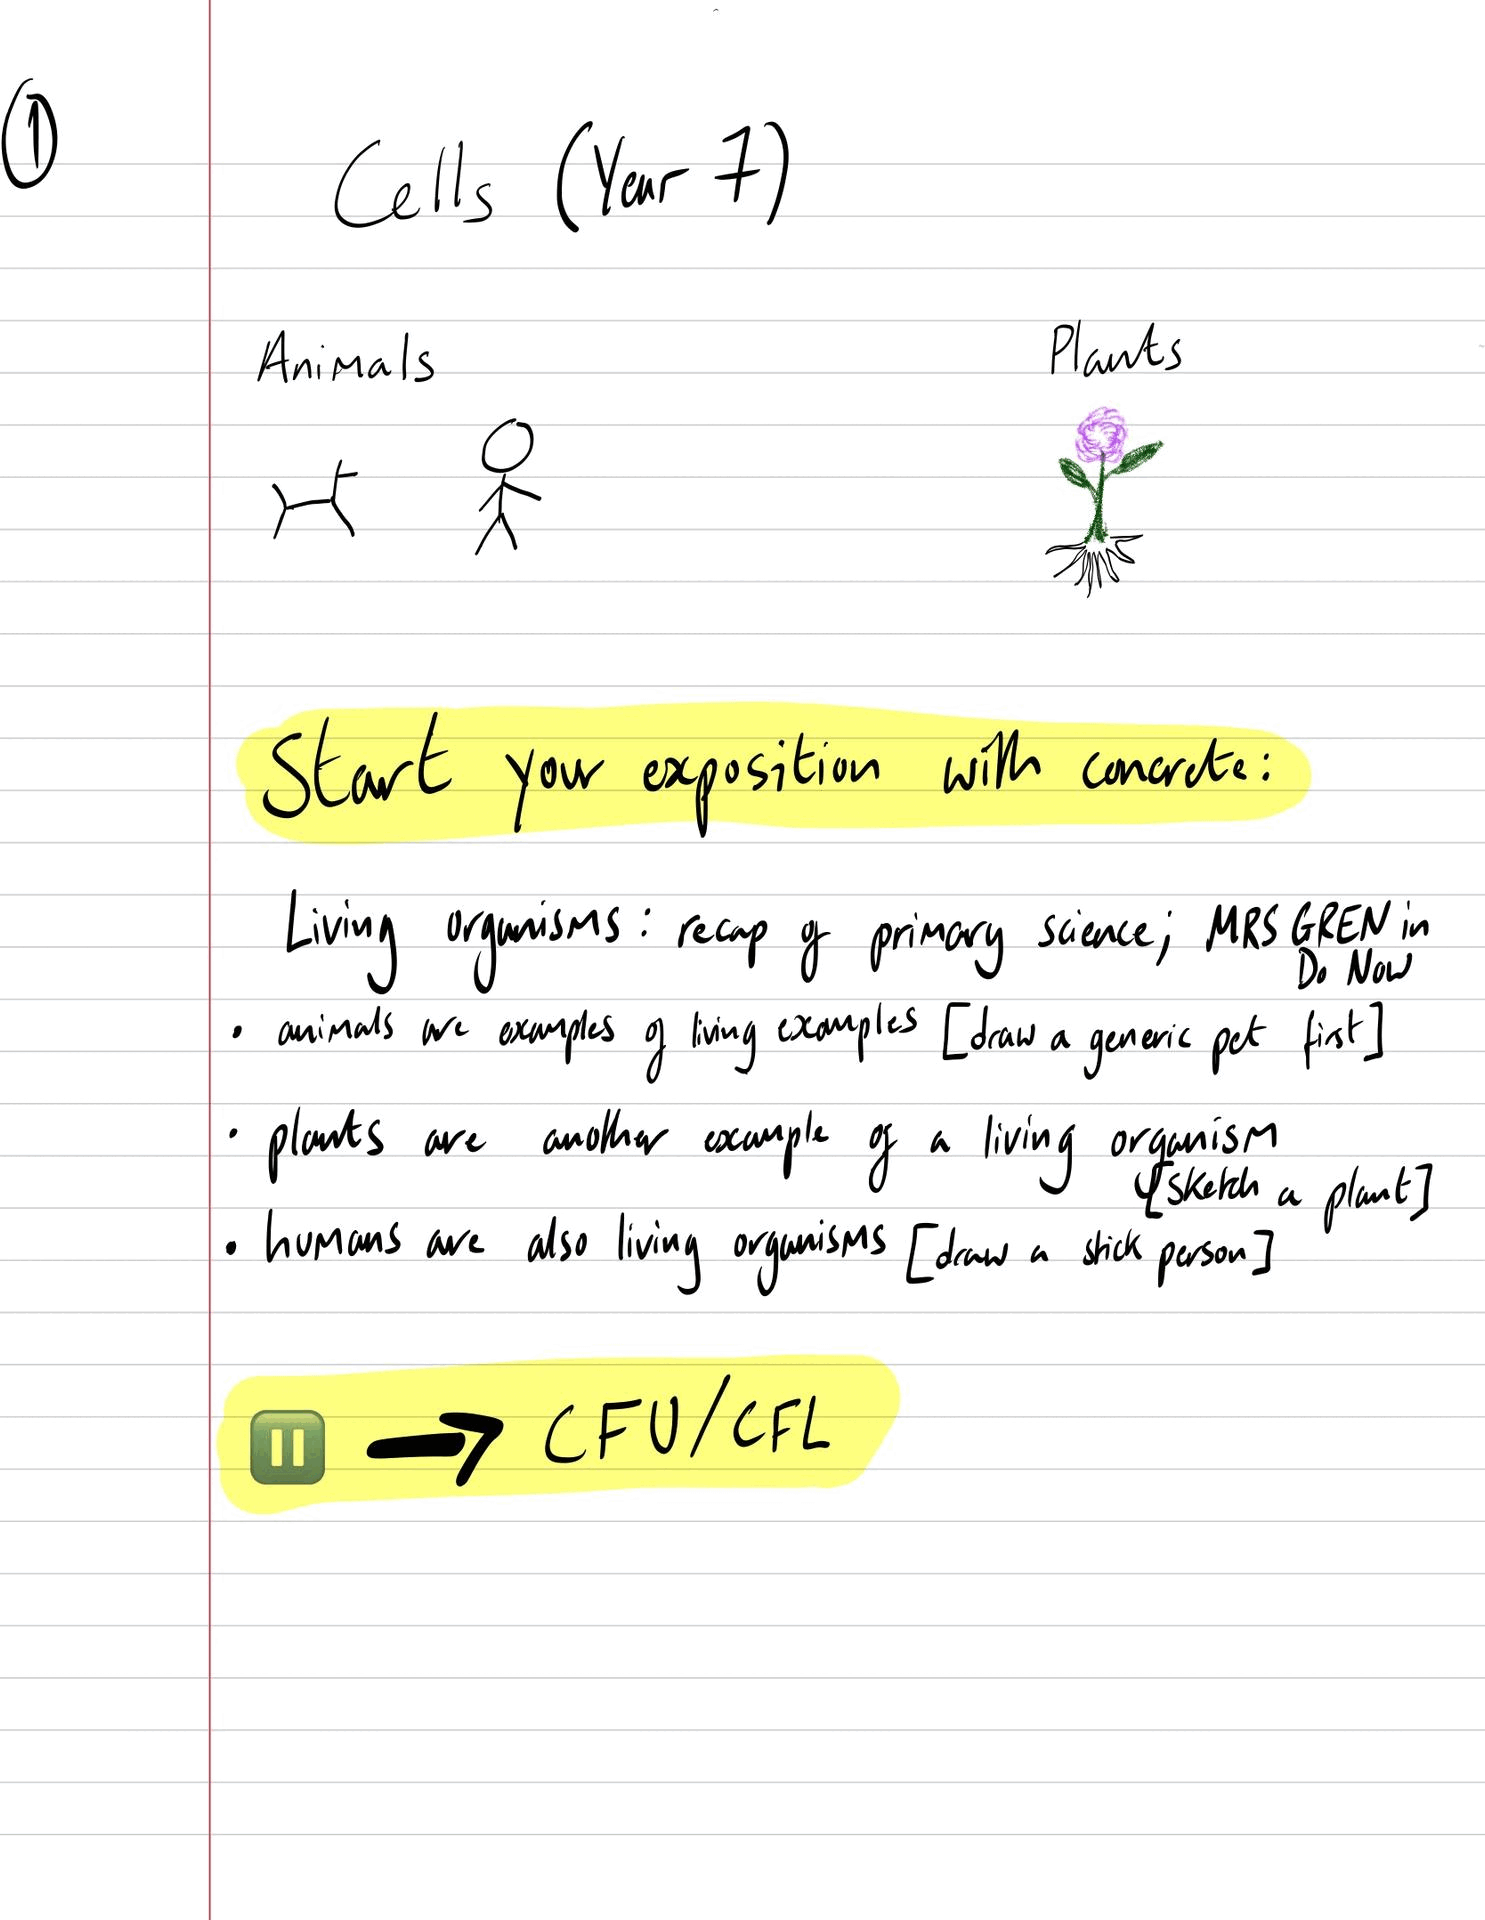 ①
Cells (Year 7)
Animals
Plants
Start your exposition with concrete:
Living organisms: recap of primary science; MRS GREN in
Do Now
• animals are examples of living examples [draw a generic pet first]
• plants are another example of a living organism
[sketch a plant]
• humans are also living organisms [draw a stick person]
→ CFU/CFL